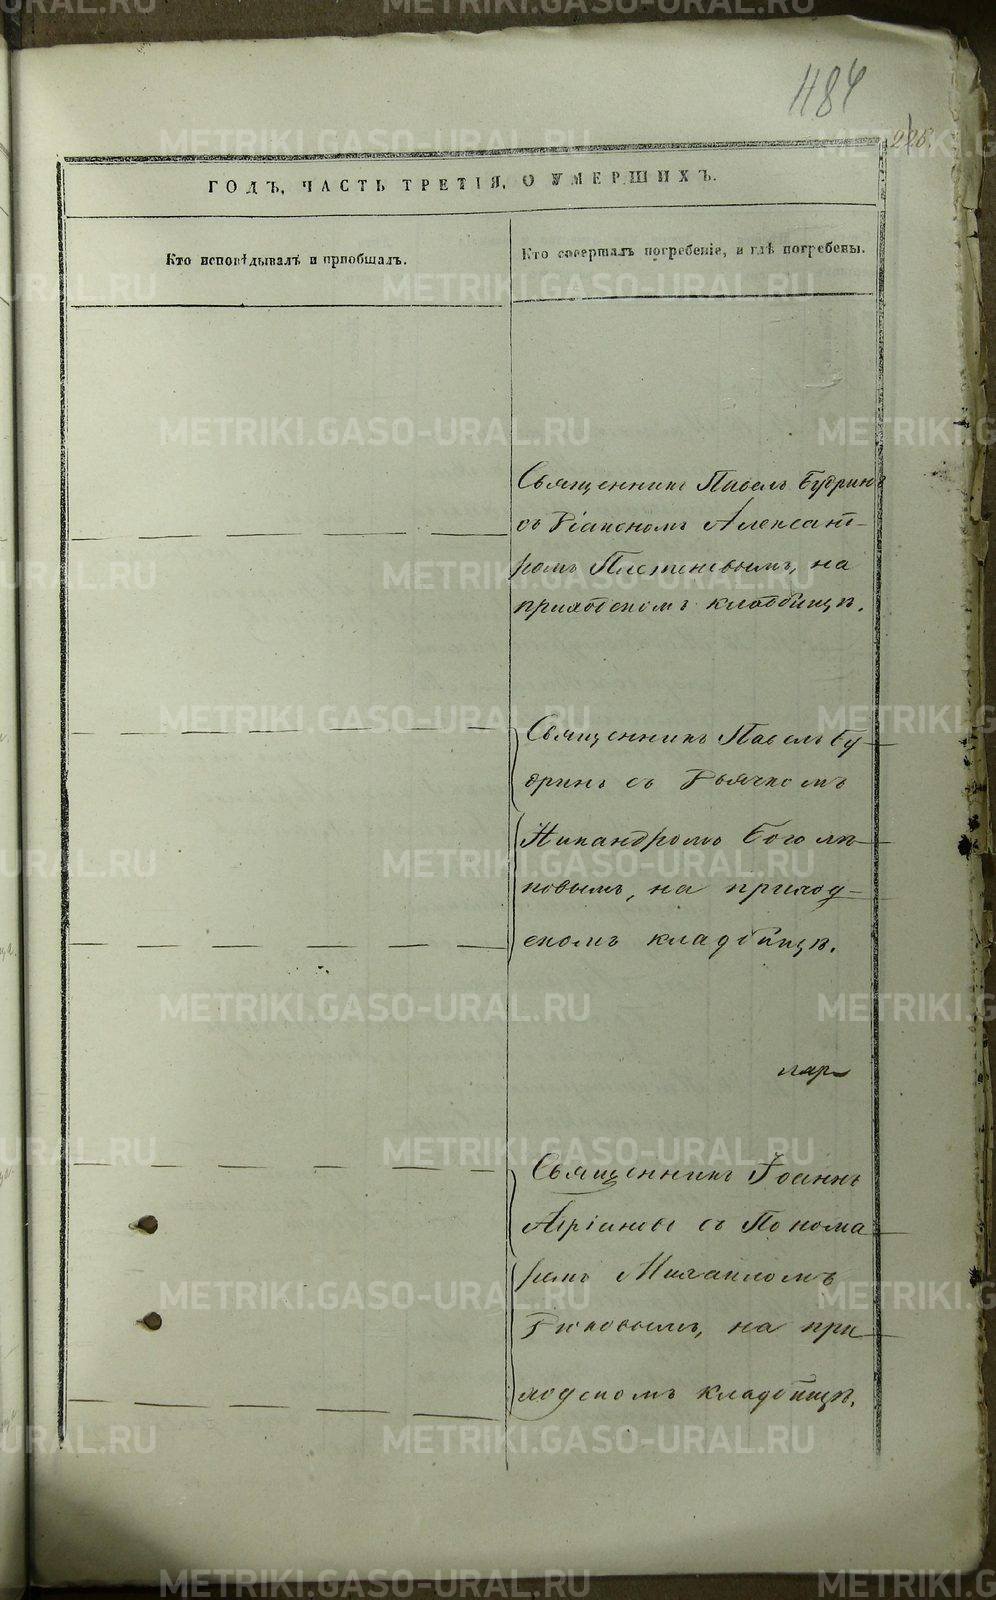 484
226.
ГОДЪ, ЧАСТЬ ТРЕТІЯ, О УМЕРШИХЪ.
Кто исповѣдывалъ и пріобщалъ.
Кто совершалъ погребеніе, и гдѣ погребены.
Священникъ Павелъ Будринъ
съ Діакономъ Алексан-
ромъ Плетеневымъ, на
приходскомъ кладбищѣ.
Священникъ Павелъ Бу-
дринъ съ Дьячкомъ
Никандромъ Боголѣ-
повымъ, на приход-
скомъ кладбищѣ.
Священникъ Іоаннъ
Адріановъ съ Понома-
ремъ Михаиломъ
на при-
ходскомъ кладбищѣ.
METRIKI.GASO-URAL.RU